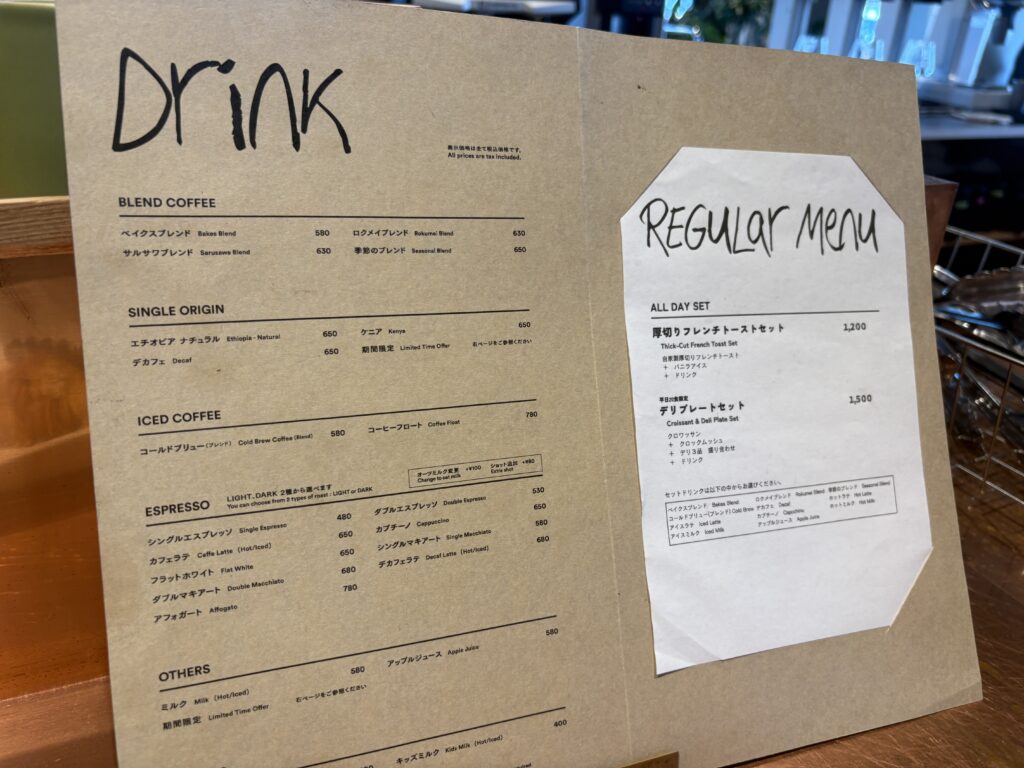 Drink
表示価格は全て税込価格です。
All prices are tax included.
BLEND COFFEE
ベイクスブレンド Bakes Blend 580
ロクメイブレンド Rokumei Blend 630
サルサワブレンド Sarusawa Blend 630
季節のブレンド Seasonal Blend 650
SINGLE ORIGIN
エチオピア ナチュラル Ethiopia - Natural 650
ケニア Kenya 650
デカフェ Decaf 650
期間限定 Limited Time Offer 右ページをご参照ください
ICED COFFEE
コールドブリュー(ブレンド) Cold Brew Coffee (Blend) 580
コーヒーフロート Coffee Float 780
ESPRESSO
LIGHT、DARK 2種から選べます
You can choose from 2 types of roast : LIGHT or DARK
オーツミルク変更 +¥100 ショット追加 +¥80
Change to oat milk Extra shot
シングルエスプレッソ Single Espresso 480
ダブルエスプレッソ Double Espresso 530
カフェラテ Caffe Latte (Hot/Iced) 650
カプチーノ Cappuccino 650
フラットホワイト Flat White 650
シングルマキアート Single Macchiato 580
ダブルマキアート Double Macchiato 680
デカフェラテ Decaf Latte (Hot/Iced) 680
アフォガート Affogato 780
OTHERS
ミルク Milk (Hot/Iced) 580
アップルジュース Apple Juice 580
期間限定 Limited Time Offer 右ページをご参照ください
キッズミルク Kids Milk (Hot/Iced) 400
REGULAr Menu
ALL DAY SET
厚切りフレンチトーストセット 1,200
Thick-Cut French Toast Set
自家製厚切りフレンチトースト
+ バニラアイス
+ ドリンク
平日20食限定
デリプレートセット 1,500
Croissant & Deli Plate Set
クロワッサン
+ クロックムッシュ
+ デリ3品 盛り合わせ
+ ドリンク
セットドリンクは以下の中からお選びください。
ベイクスブレンド Bakes Blend ロクメイブレンド Rokumei Blend 季節のブレンド Seasonal Blend
コールドブリュー(ブレンド) Cold Brew デカフェ Decaf ホットラテ Hot Latte
アイスラテ Iced Latte カプチーノ Capuchino ホットミルク Hot Milk
アイスミルク Iced Milk アップルジュース Apple Juice